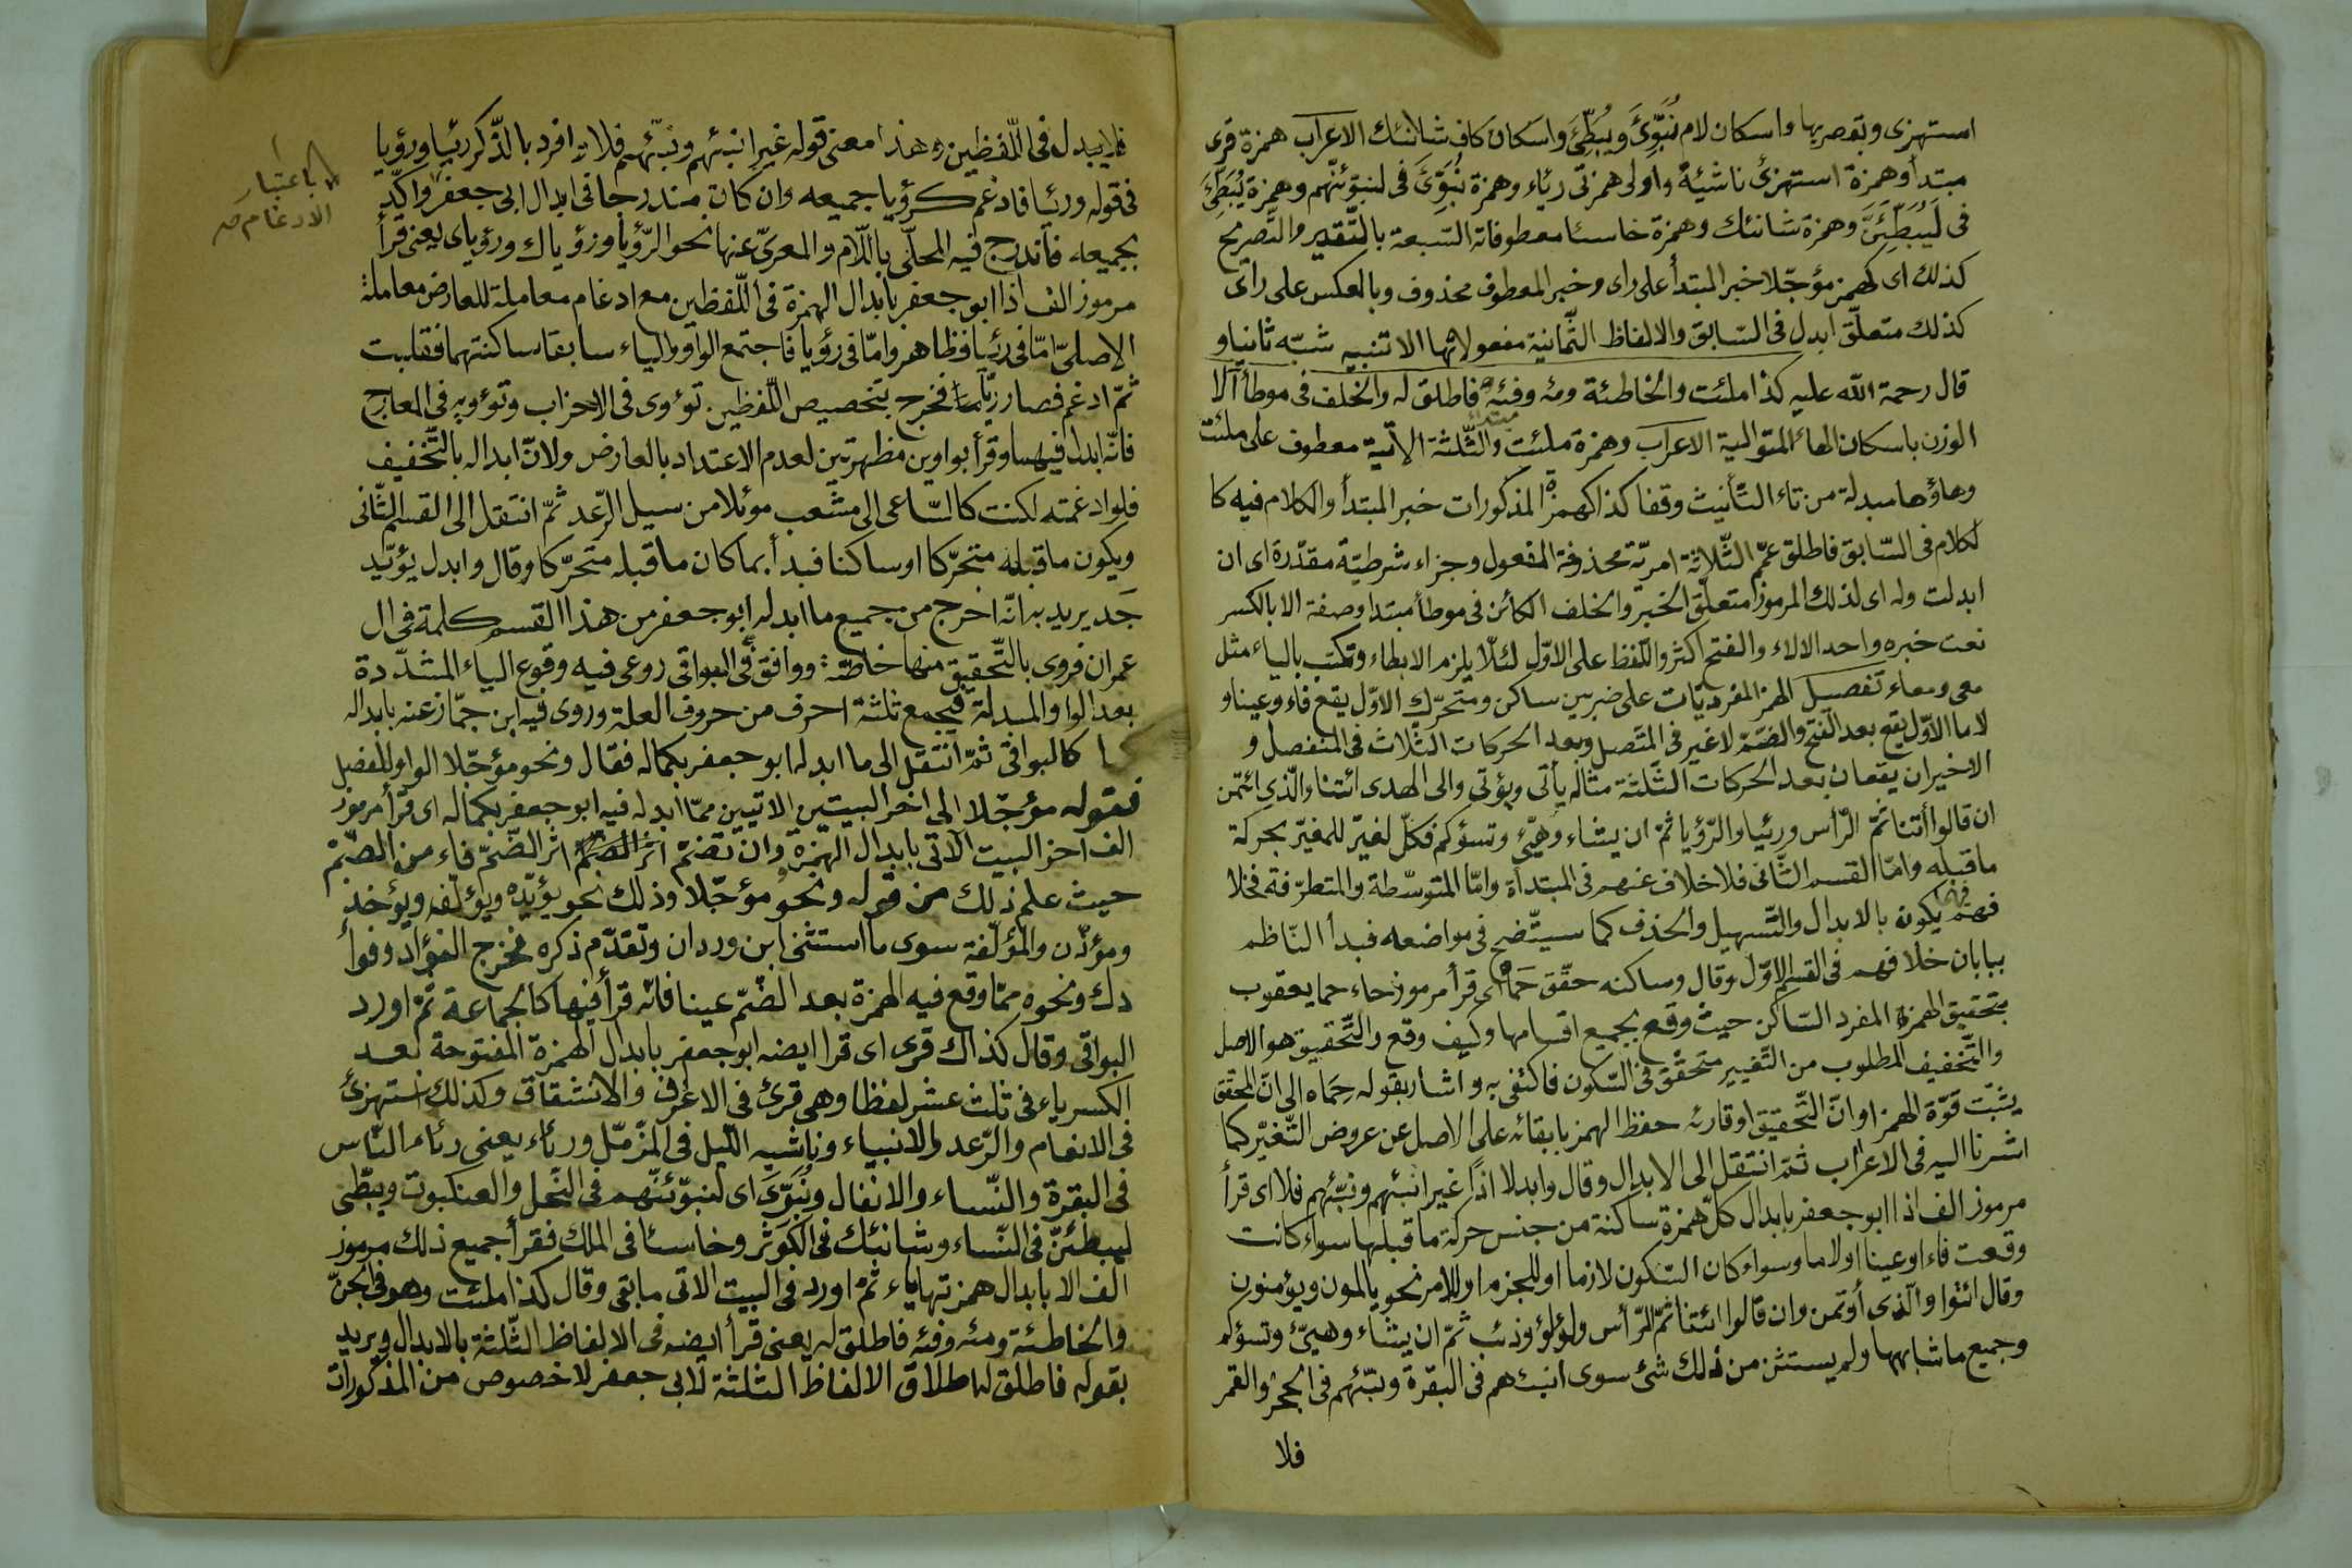 استهزى وبقصر بها واسكان لام نُبَوِّئَ ويُبَطِّئَ واسكان كاف شانئك الاعراب همزة قرى
مبتدأ وهمزة استهزئ ناشيةً واولى همزتى رئاء وهمزة نُبَوِّئَ فى لنبوّئنّهم وهمزة يُبَطِّئَ
فى لَيُبَطِّئَنَّ وهمزة شانئك وهمزة خاسئا معطوفاته السّبعة بالتّقدير والتّصريح
كذلك اى كهمز مؤجّلا خبر المبتدأ على راى وخبر المعطوف محذوف وبالعكس على رأى
كذلك متعلّق ابدل فى السّابق والالفاظ الثّمانية مفعولاتها الا تنبيه شبّه ثانيا و
قال رحمة الله عليه كذا ملئت والخاطئة ومئه وفئه فاطلق له والخلف فى موطأ الا
الوزن باسكان الهاء المتوالية الاعراب وهمزة ملئت مبتدأ والثّلثة الآتية معطوف على ملئت
وهاؤها مبدلة من تاء التّأنيث وقفا كذا كهمزة المذكورات خبر المبتدأ والكلام فيه كا
لكلام فى السّابق فاطلق عمّم الثّلاثة امريّة محذوفة المفعول وجزاء شرطيّة مقدّرة اى ان
ابدلت وله اى لذلك المرموز متعلّق الخبر والخلف الكائن فى موطأ مبتدا وصفة الا بالكسر
نعت خبره واحد الالاء والفتح اكثر واللّفظ على الاوّل لئلّا يلزم الايطاء وتكتب بالياء مثل
معى ومعاء تفصيل الهمز المفرد يّات على ضربين ساكن ومتحرّك الاوّل يقع فاء وعينا و
لاما الاوّل يقع بعد الفتح والضّمّ لا غير فى المتّصل وبعد الحركات الثّلاث فى المنفصل و
الاخيران يقعان بعد الحركات الثّلثة مثاله يأتى ويؤتى والى الهدى ائتنا والّذى ائتمن
ان قالوا أتنا ثمّ الرّأس ورئيا والرّؤيا ثمّ ان يشاء وهيّئ وتسؤكم فكلّ لغيّر للمغيّر بحركة
ما قبله وامّا القسم الثّانى فلا خلاف عنهم فى المبتدأة وامّا المتوسّطة والمتطرّفة فخلا
فهم فيهما يكون بالابدال والتّسهيل والحذف كما سيتّضح فى مواضعه فبدأ النّاظم
ببابان خلافهم فى القسم الاوّل وقال وساكنه حقّق حَمَاهُ اى قرأ مرموز حاء حما يعقوب
بتحقيق الهمزة المفرد السّاكن حيث وقع بجميع اقسامها وكيف وقع والتّحقيق هو الاصل
والتّخفيف المطلوب من التّغيير متحقّق فى السّكون فاكتفى به واشار بقوله حِمَاه الى انّ المحقّق
يثبّت قوّة الهمز اوانّ التّحقيق اوقارئه حفظ الهمز بابقائه على الاصل عن عروض التّغيّر كما
اشرنا اليه فى الاعراب ثمّ انتقل الى الابدال وقال وابدلا اذًا غير انبئهم ونبّئهم فلا اى قرأ
مرموز الف اذا ابو جعفر بابدال كلّ همزة ساكنة من جنس حركة ما قبلها سواء كانت
وقعت فاء او عينا او لاما وسواء كان السّكون لازما او للجزم او للامر نحو يالمون ويؤمنون
وقال ائتوا والّذى أوتمن وان قالوا ائتنا ثمّ الرّأس ولؤلؤ وذئب ثمّ ان يشاء وهيّئ وتسؤكم
وجميع ما شابهها ولم يستثن من ذلك شئ سوى انبئهم فى البقرة ونبّئهم فى الحجر والقمر
فلا
فلا يبدل فى اللّفظين وهذا معنى قوله غير انبئهم ونبّئهم فلا ثمّ افرد بالذّكر رئيا ورؤيا
فى قوله ورئيا فادغم كرؤيا جميعه وان كان مندرجا فى ابدال ابى جعفر واكّد
باعتبار
الادغام صح
بجميعه فاندرج فيه المحلّى باللّام والمعرىّ عنها نحو الرّؤيا ورؤياك ورؤياى يعنى قرأ
مرموز الف اذا ابو جعفر بابدال الهمزة فى اللّفظين مع ادغام معاملة للعارض معاملة
الاصلىّ امّا فى رئيا فظاهر وامّا فى رؤيا فاجتمع الواو والياء سابقا ساكنتهما فقلبت
ثمّ ادغم فصار ريّا فخرج بتخصيص اللّفظين تؤوى فى الاحزاب وتؤويه فى المعارج
فانّه ابدل فيهما وقرأ بواوين مظهرتين لعدم الاعتداد بالعارض ولانّ ابداله بالتّخفيف
فلو ادغمته لكنت كالسّاعى الى مثعب موئلا من سيل الرّعد ثمّ انتقل الى القسم الثّانى
ويكون ما قبله متحرّكا او ساكنا فبدأ بما كان ما قبله متحرّكا وقال وابدل يؤيّد
جَد يريد به انّه اخرج من جميع ما ابدله ابو جعفر من هذا القسم كلمة فى ال
عمران فروى بالتّحقيق منها خاصّة ووافق فى البواقى روعى فيه وقوع الياء المشدّدة
بعد الواو المبدلة فيجمع ثلثة احرف من حروف العلة وروى فيه ابن جمّاز عنه بابداله
كالبواقى ثمّ انتقل الى ما ابدله ابو جعفر بكماله فقال ونحو مؤجّلا الواو للفصل
فقوله مؤجّلا الى اخر البيتين الاتيين ممّا ابدله فيه ابو جعفر بكماله اى قرأ مرموز
الف اخر البيت الآتى بابدال الهمزة وان تضمّ اثر الضّمّ فاء من الضّمّ
حيث علم ذلك من قوله ونحو مؤجّلا وذلك نحو يؤيّده ويؤلّفه ويؤخذ
ومؤذّن والمؤلّفة سوى ما استثنى ابن وردان وتقدّم ذكره فخرج الفؤاد وفوأ
دك ونحوه ممّا وقع فيه الهمزة بعد الضّمّ عينا فانّه قرأ فيها كالجماعة ثمّ اورد
البواقى وقال كذاك قرى اى قرا ايضه ابو جعفر بابدال الهمزة المفتوحة بعد
الكسر ياء فى ثلث عشر لفظا وهى قرئ فى الاعراف والانشقاق وكذلك استهزئ
فى الانعام والرّعد والانبياء وناشيه اللّيل فى المزّمّل ورئاء يعنى رئاء النّاس
فى البقرة والنّساء والانفال ونُبَوّئ اى لنبوّئنّهم فى النّحل والعنكبوت ويبطّئ
ليبطّئنّ فى النّساء وشانئك فى الكوثر وخاسئا فى الملك فقرأ جميع ذلك مرموز
الف الا بابدال همزتها ياء ثمّ اورد فى البيت الاتى ما بقى وقال كذا ملئت وهو فى الجنّ
والخاطئة ومئه وفئه فاطلق له يعنى قرأ ايضه فى الالفاظ الثّلثة بالابدال ويريد
بقوله فاطلق له اطلاق الالفاظ الثلثة لابى جعفر لا خصوص من المذكورات